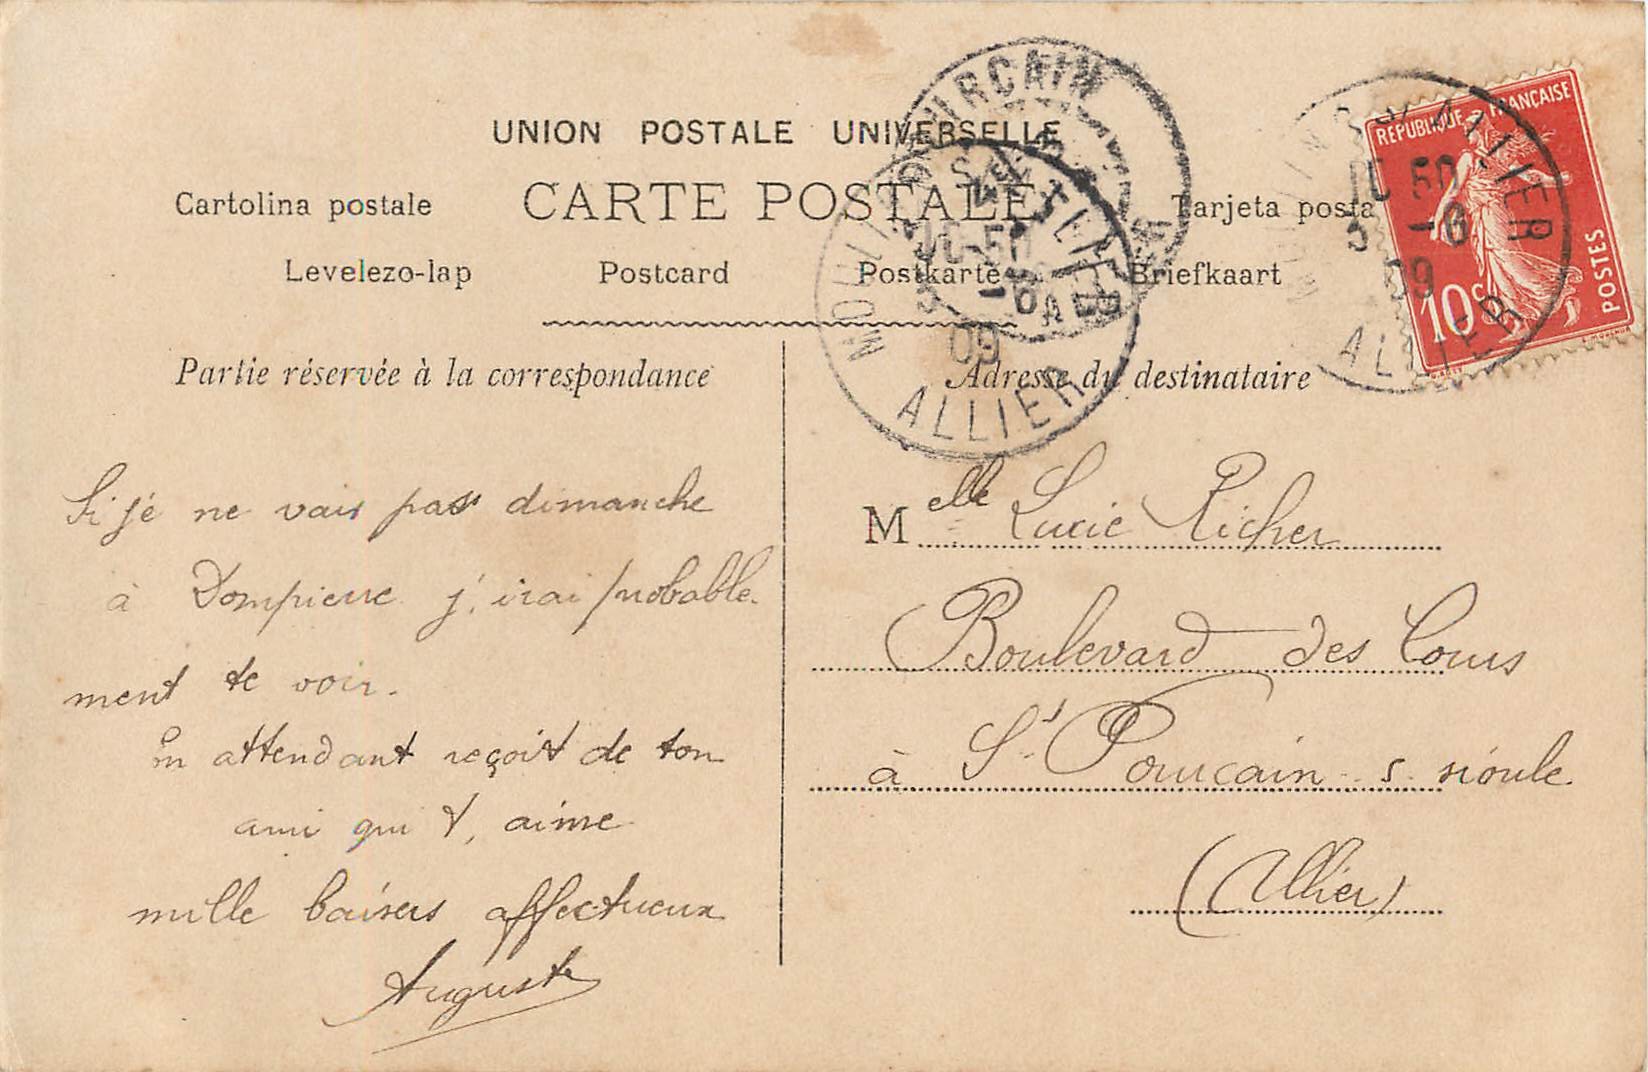 UNION POSTALE UNIVERSELLE
CARTE POSTALE
Cartolina postale
Tarjeta posta
Levelezo-lap
Postcard
Postkarte
Briefkaart
REPUBLIQUE FRANÇAISE
10c
POSTES
ST POURCAIN
ALLIER
10-50
-6
09
MOULINS S/ ALLIER
10 50
5 -6
09
ALLIER
Partie réservée à la correspondance
Si jé ne vais pas dimanche
à Dompierre j'irai probable-
ment te voir.
En attendant reçoit de ton
ami qui t, aime
mille baisers affectueux
Auguste
Adresse du destinataire
Melle Lucie Richer
Boulevard des Cours
à St Pourcain s. sioule
(Allier)